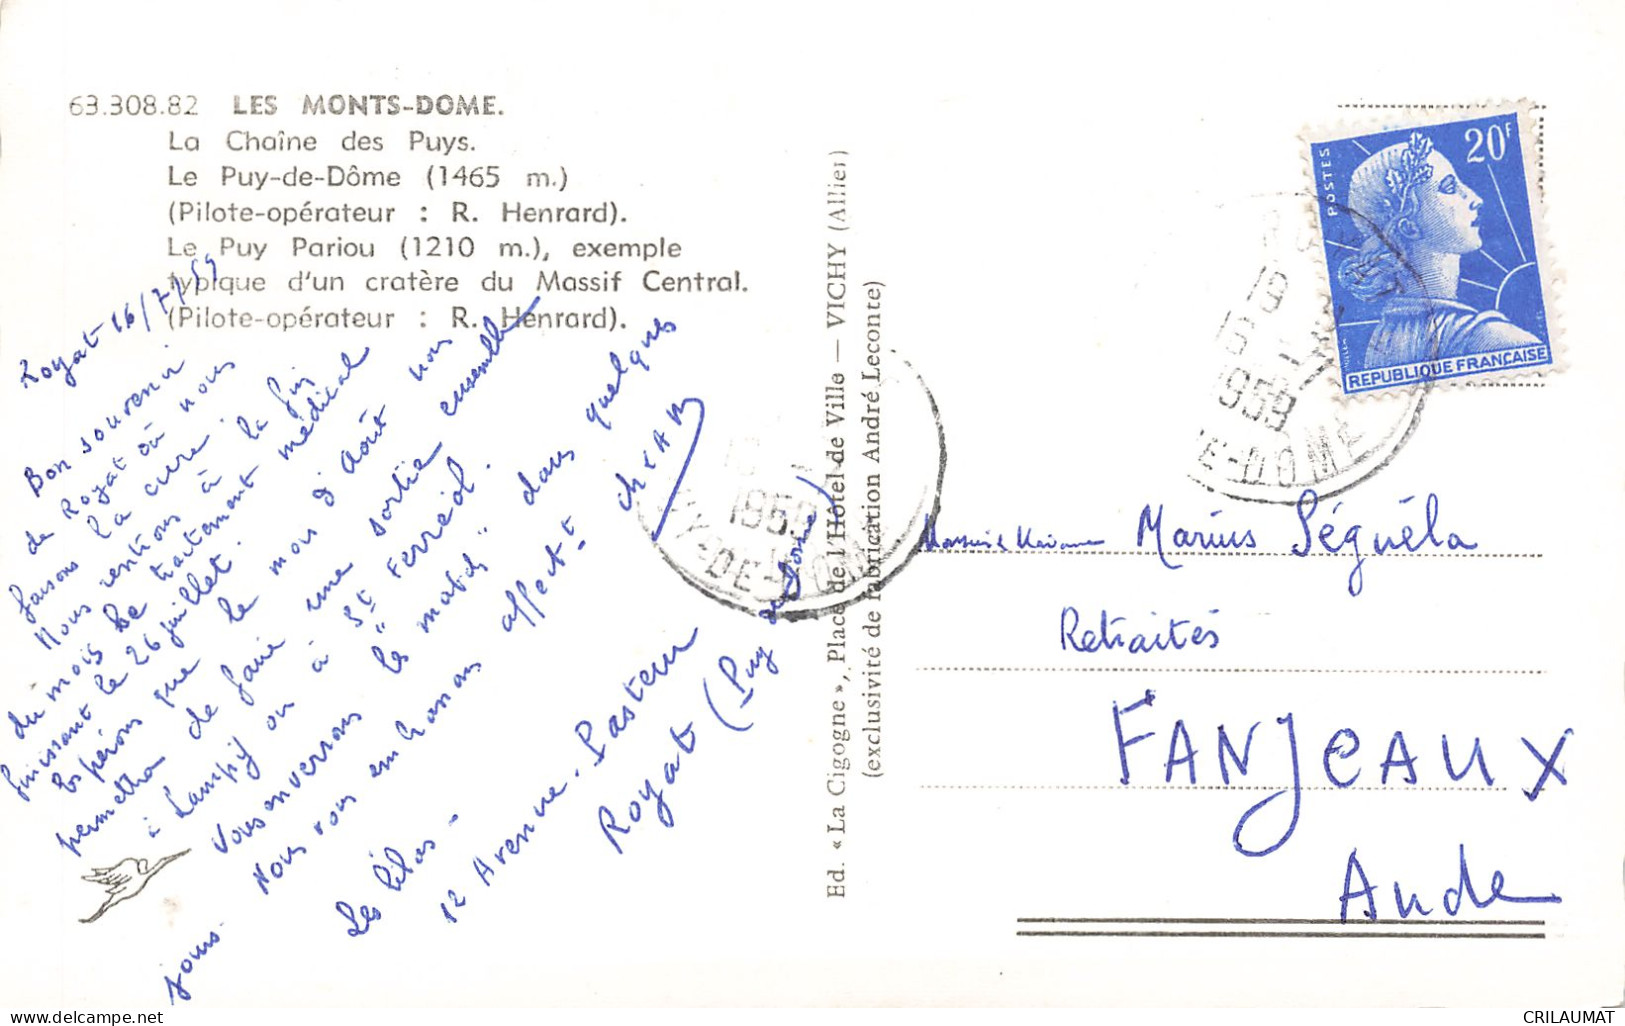 63.308.82 LES MONTS-DOME.
La Chaîne des Puys.
Le Puy-de-Dôme (1465 m.)
(Pilote-opérateur : R. Henrard).
Le Puy Pariou (1210 m.), exemple
typique d'un cratère du Massif Central.
(Pilote-opérateur : R. Henrard).
Royat 16/7/59
Bon souvenir
de Royat où nous
faisons la cure.
Nous rentrons à la fin
du mois le traitement médical
finissant le 26 juillet.
Espérons que le mois d'août nous
permettra de faire une sortie ensemble
à Lampy ou à St Ferréol.
Vous enverrons les "matds" dans quelques
jours.
Nous vous embrassons affectt
Les Lilas -
12 Avenue Pasteur
Royat (Puy de Dôme)
Ed. « La Cigogne », Place de l'Hôtel de Ville — VICHY (Allier)
(exclusivité de fabrication André Leconte)
POSTES
20F
REPUBLIQUE FRANÇAISE
ROYAT
19
16-7
1959
DE-DOME
1959
PUY-DE-DOME
Monsieur & Madame Marius Séguéla
Retraités
FANJEAUX
Aude
CRILAUMAT